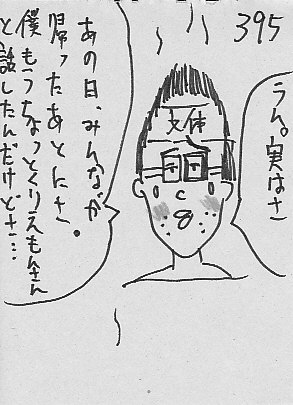 395
うん。実はさ
あの日、みんなが
帰ったあとにさ。
僕もうちょっとくりえもんさん
と話したんだけどさ…